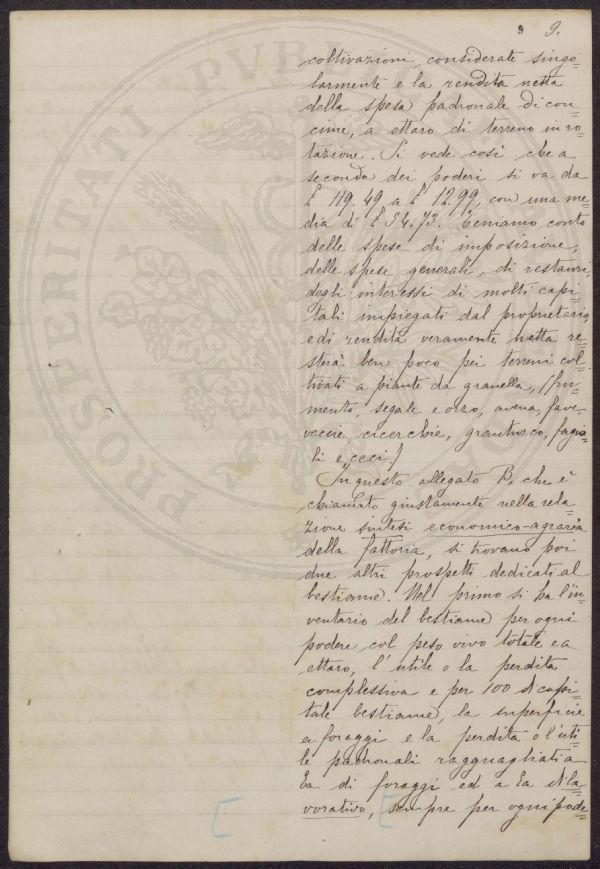 9 9.
coltivazioni, considerate singo=
larmente e la rendita netta
della spesa padronale di con
cime, a ettaro di terreno in ro=
tazione. Si vede così che a
seconda dei poderi si va da
£ 119.49 a £ 12.99, con una me=
dia di £ 54.73. Teniamo conto
delle spese di imposizione,
delle spese generali, di restauri,
degli interessi di molti capi=
tali impiegati dal proprietario,
e di rendita veramente netta re=
sterà ben poco pei terreni col=
tivati a piante da granella, (fru=
mento, segale e orzo, avena, fave,
veccie, cicerchie, granturco, fagio=
li e ceci.)
In questo allegato B, che è
chiamato giustamente nella rela=
zione sintesi economico-agraria
della fattoria, si trovano poi
due altri prospetti dedicati al
bestiame. Nel primo si ha l'in=
ventario del bestiame per ogni
podere col peso vivo totale e a
ettaro, l'utile o la perdita
complessiva e per 100 di capi=
tale bestiame, la superficie
a foraggi e la perdita o l'uti=
le padronali ragguagliati a
Ea di foraggi ed a Ea di la=
vorativo, sempre per ogni pode=
PROSPERITATI PUBL